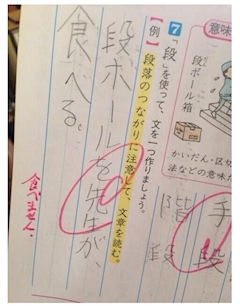 意味
段ボール箱
かいだん・区切
法などの意味か
手
階段
段
7 「段」を使って、文を一つ作りましょう。
【例】段落のつながりに注意して、文章を読む。
段ボールを先生が、
食べる。
食べません。